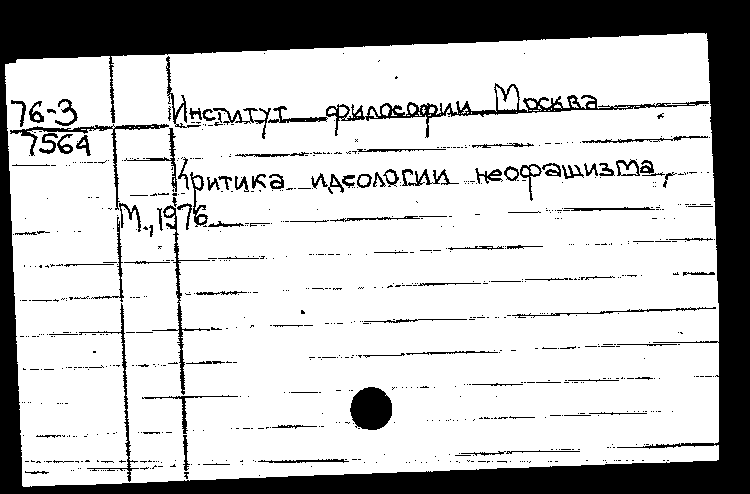 76-3
7564
Институт философии Москва
Критика идеологии неофашизма,
М., 1976